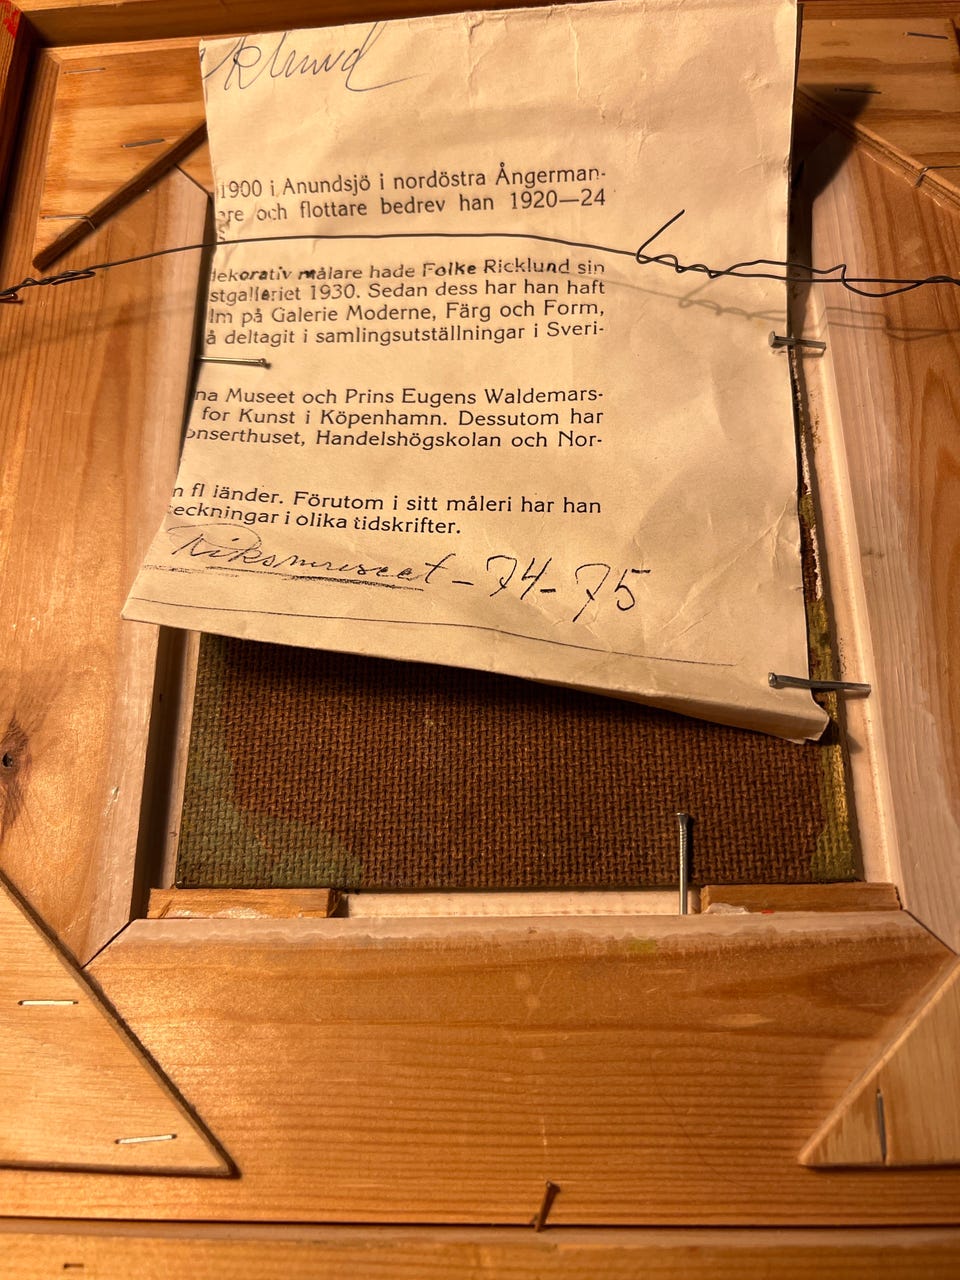 Rklund
1900 i Anundsjö i nordöstra Ångerman-
re och flottare bedrev han 1920—24
s.
dekorativ målare hade Folke Ricklund sin
stgalleriet 1930. Sedan dess har han haft
lm på Galerie Moderne, Färg och Form,
å deltagit i samlingsutställningar i Sveri-
na Museet och Prins Eugens Waldemars-
for Kunst i Köpenhamn. Dessutom har
onserthuset, Handelshögskolan och Nor-
n fl länder. Förutom i sitt måleri har han
eckningar i olika tidskrifter.
Riksmuseet - 74-75